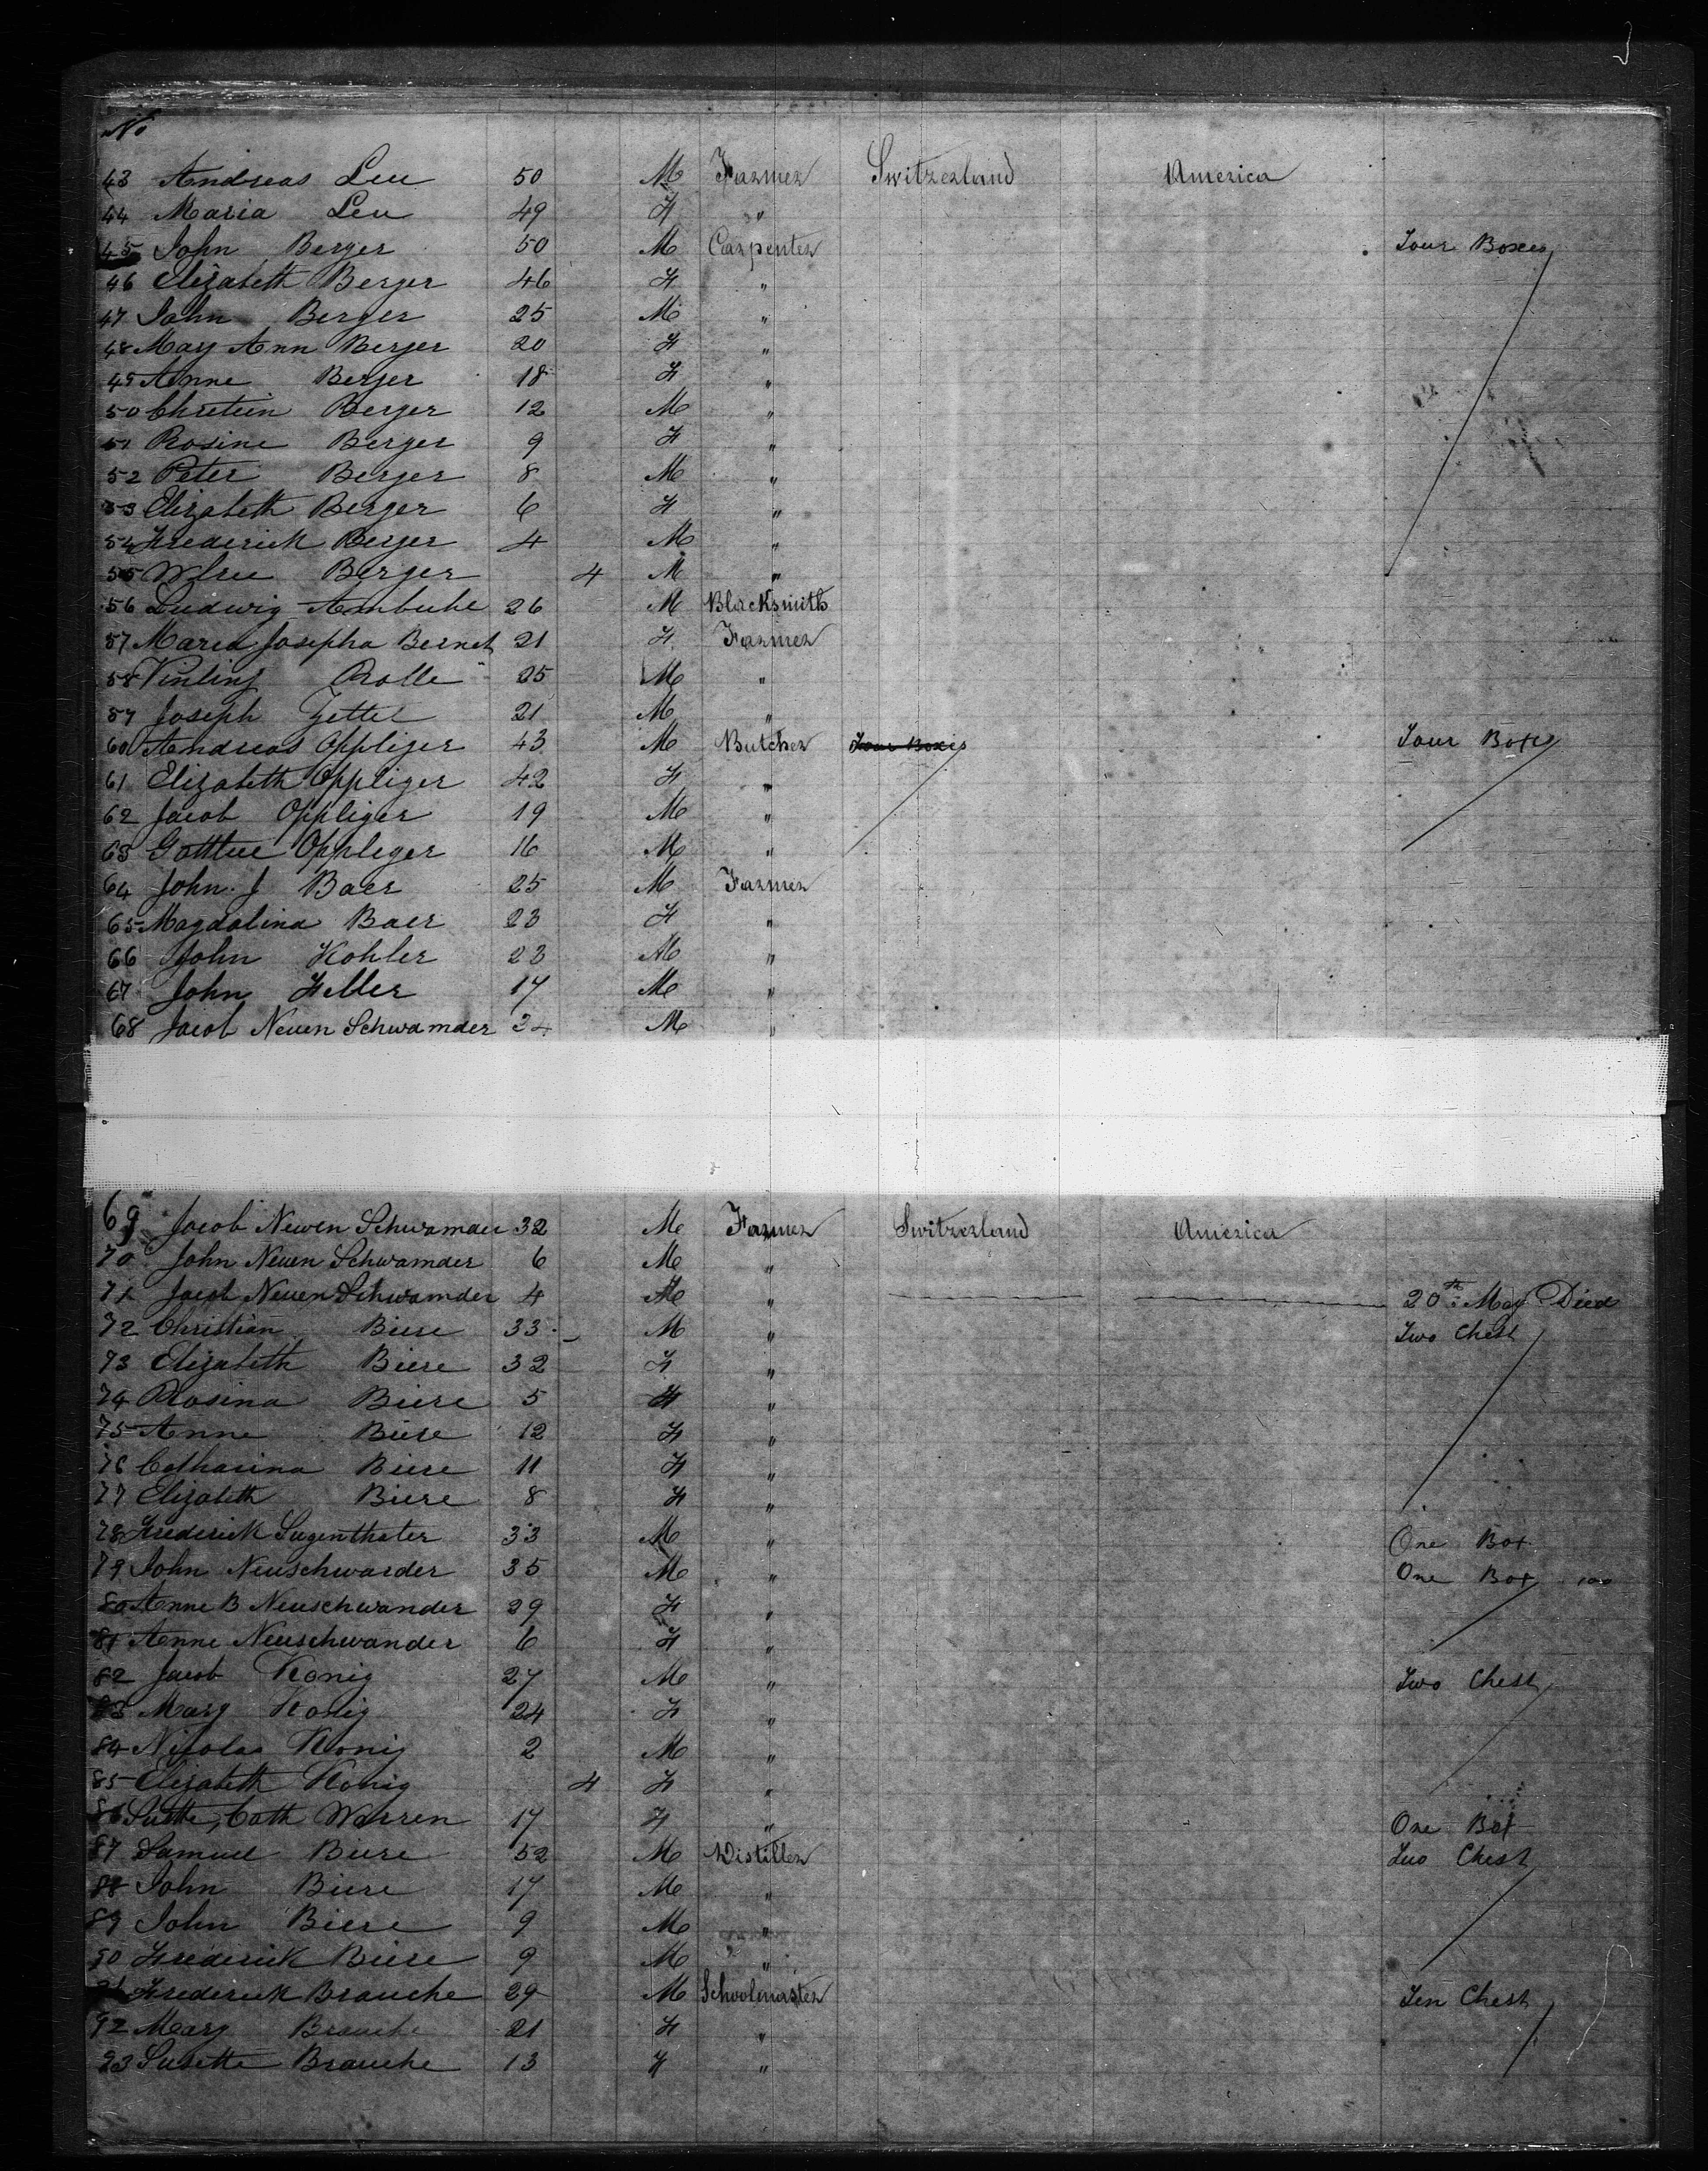 No
43 Andreas Leu 50 M Farmer Switzerland America
44 Maria Leu 49 F "
45 John Berger 50 M Carpenter Four Boxes
46 Elizabeth Berger 46 F "
47 John Berger 25 M "
48 Mary Ann Berger 20 F "
49 Anne Berger 18 F "
50 Chretien Berger 12 M "
51 Rosine Berger 9 F "
52 Peter Berger 8 M "
53 Elizabeth Berger 6 F "
54 Frederick Berger 4 M "
55 Berger 4 M "
56 Ludwig Ambuhe 26 M Blacksmith
57 Maria Josepha Bernet 21 F Farmer
58 Rolle 25 M "
59 Joseph Zettel 21 M "
60 Andreas Oppliger 43 M Butcher Four Boxes Four Boxes
61 Elizabeth Oppliger 42 F "
62 Jacob Oppliger 19 M "
63 Oppliger 16 M "
64 John J Baer 25 M Farmer
65 Magdalina Baer 23 F "
66 John Kohler 23 M "
67 John Feller 17 M "
68 Jacob Neuen Schwamder 34 M "
69 Jacob Neuen Schwamder 32 M Farmer Switzerland America
70 John Neuen Schwamder 6 M "
71 Jacob Neuen Schwamder 4 M " 20th May Died
72 Christian Biere 33 M " Two Chest
73 Elizabeth Biere 32 F "
74 Rosina Biere 5 F "
75 Anne Biere 12 F "
76 Catharina Biere 11 F "
77 Elizabeth Biere 8 F "
78 Frederick Sugenthater 33 M " One Box
79 John Neuschwarder 35 M " One Box
80 Anne B Neuschwander 29 F "
81 Anne Neuschwander 6 F "
82 Jacob Konig 27 M " Two Chest
83 Mary Konig 24 F "
84 Nicolas Konig 2 M "
85 Elizabeth Konig 4 F "
86 Cath Warren 17 F " One Box
87 Samuel Biere 52 M Distiller Two Chest
88 John Biere 17 M "
89 John Biere 9 M "
90 Frederick Biere 9 M "
91 Frederick Brauche 29 M Schoolmaster Ten Chest
92 Mary Brauche 21 F "
93 Susette Brauche 13 F "